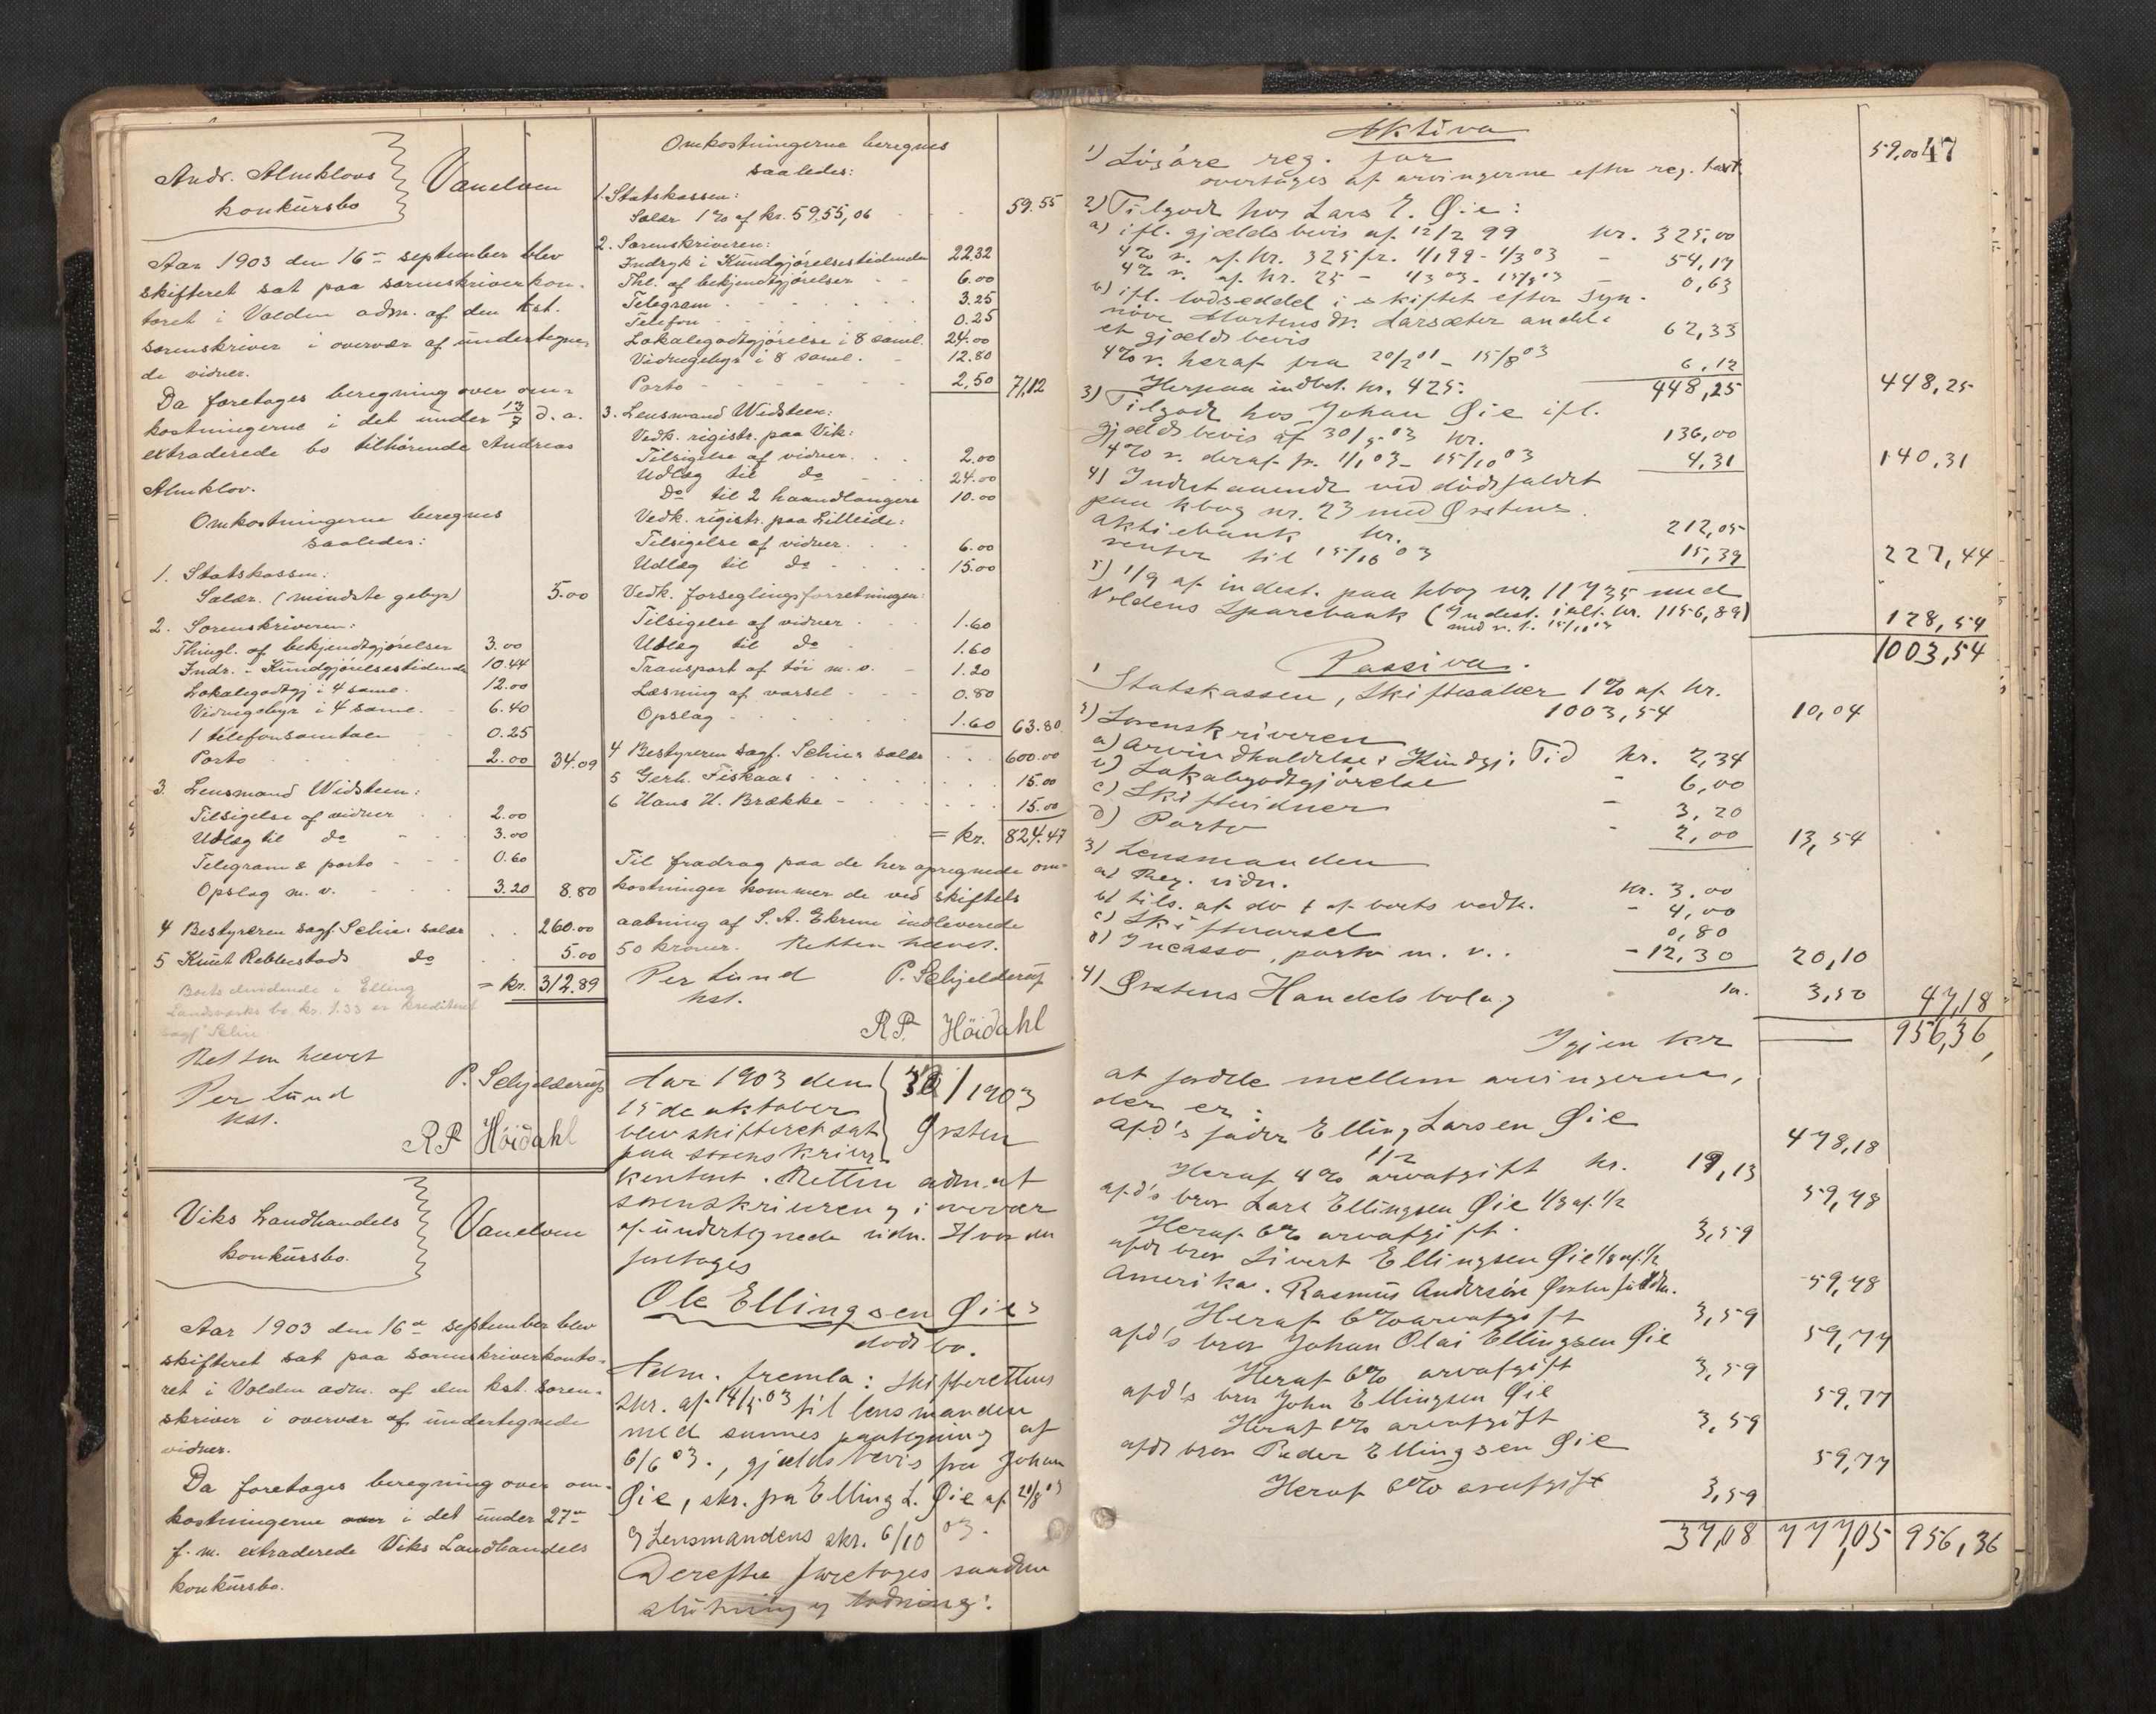 Andr. Almklovs
konkursbo
Vanelven
Aar 1903 den 16de september blev
skifteret sat paa sorenskriverkon-
toret i Volden adm. af den kst.
sorenskriver i overvær af undertegne-
de vidner.
Da foretages beregning over om-
kostningerne i det under 13/7 d. a.
extraderede bo tilhörende Andreas
Almklov.
Omkostningerne beregnes
saaledes:
1. Statskassen:
Salær. (mindste gebyr) 5.00
2. Sorenskriveren:
Thingl. af bekjendtgjörelser 3.00
Indr. i Kundgjörelsestidende 10.44
Lokalegodtgj i 4 saml. 12.00
Vidnegebyr i 4 saml. - 6.40
1 telefonsamtale 0.25
Porto 2.00 34.09
3. Lensmand Widsteen:
Tilsigelse af vidner 2.00
Udlæg til do - 3.00
Telegram & porto - - 0.60
Opslag m. v. - 3.20 8.80
4 Bestyreren sagf. Schie's salær . . 260.00
5 Knut Rebbestads do . 5.00
= kr. 312.89
Boets dividende i Elling
Landsværks bo kr. 1.33 er krediteret
sagf. Schie
Retten hævet
Per Lund
kst.
P. Schjelderup
R P Höidahl
Viks Landhandels
konkursbo.
Vanelven
Aar 1903 den 16de september blev
skifteret sat paa sorenskriverkonto-
ret i Volden adm. af den kst. soren-
skriver i overvær af undertegnede
vidner.
Da foretages beregning over om-
kostningerne over i det under 27de
f. m. extraderede Viks Landhandels
konkursbo.
Omkostningerne beregnes
saaledes:
1. Statskassen:
Salær 1 % af kr. 5955,06 - - 59.55
2. Sorenskriveren:
Indryk i Kundgjörelsestidende 22.32
Thl. af bekjendtgjörelser - - 6.00
Telegram - - - - 3.25
Telefon - - - - 0.25
Lokalegodtgjörelse i 8 saml. 24.00
Vidnegebyr i 8 saml. - 12.80
Porto - - - - 2,50 71,12
3. Lensmand Widsteen:
Vedk. registr. paa Vik:
Tilsigelse af vidner. . . 2.00
Udlæg til do . . 24.00
Do til 2 haandlangere 10.00
Vedk. registr. paa Lilleide:
Tilsigelse af vidner. . . 6.00
Udlæg til do - . . . 15.00
Vedk. forseglingsforretningen:
Tilsigelse af vidner . - 1.60
Udlæg til do - 1.60
Transport af töi m. v. - 1.20
Læsning af varsel - - - 0.80
Opslag - . . . . . 1.60 63.80
4 Bestyreren sagf. Schie's salær . . . 600.00
5 Gerh. Fiskaas . . . . . . 15.00
6 Hans H. Brække - . . . . . 15.00
= kr. 824.47
Til fradrag paa de her opregnede om-
kostninger kommer de ved skiftets
aabning af S. A. Ekrene indleverede
50 kroner. Retten hævet.
Per Lund
kst.
P. Schjelderup
R. P. Höidahl
Aar 1903 den
15de oktober
blev skifteret sat
paa sorenskriver-
kontoret. Retten adm. af
sorenskriveren og i overvær
af undertegnede vidn. Hvor da
foretages
/1903
Örsten
Ole Ellingsen Øies
dödsbo.
Adm. fremla: Skifterettens
skr. af 14/5 03 til lensmanden
med sammes paategning af
6/6 03., gjældsbevis fra Johan
Øie, skr. fra Elling L. Øie af 20/8 03
og Lensmandens skr. 6/10 03.
Derefter foretages saadan
slutning og lodning:
47
Aktiva
1) Lösöre reg. for
overtages af arvingerne efter reg. taxt. 59,00
2) Tilgode hos Lars E. Øie:
a) ifl. gjældsbevis af 12/2 99 kr. 325,00
4% r. af kr. 325 fr. 1/1 99 - 1/3 03 - 54,17
4% r. af kr. 25 - 1/3 03 - 15/8 03 - 0,63
b) ifl. lodseddel i skiftet efter Syn-
növe Mortensdr. Aarsæter andel i
et gjældsbevis 62,33
4% r. heraf fra 20/2 01 - 15/8 03 6,12
Herpaa indbet. kr. 425. 448,25 448,25
3) Tilgode hos Johan Øie ifl.
gjældsbevis af 30/5 03 kr. 136,00
4% r. deraf fr. 1/1 03 - 15/10 03 4,31 140,31
4) Indestaaende ved dödsfaldet
paa kbog nr. 23 med Ørstens
Aktiebank kr. 212,05
renter til 15/10 03 15,39 227,44
5) 1/9 af indest. paa kbog nr. 11735 med
Voldens Sparebank (Indest. ialt kr. 1156,89)
med r. t. 15/10 03 128,54
1003,54
Passiva.
1 Statskassen, Skiftesalær 1% af kr.
1003,54 10,04
2) Sorenskriveren
a) Arvindkaldelse i Kundgj. Tid kr. 2,34
b) Lokalegodtgjörelse - 6,00
c) Skiftevidner 3,20
d) Porto - 2,00 13,54
3) Lensmanden
a) Reg. vidn. kr. 3,00
b) tils. af do & af boets vedk. - 4,00
c) Skiftevarsel 0,80
d) Incasso, porto m. v. . - 12,30 20,10
4) Ørstens Handelsbolag 3,50 47,18
Igjen kr 956,36
at fordele mellem arvingerne,
der er:
afd's fader Elling Larsen Øie
1/2 478,18
Heraf 4% arvafgift kr. 19,13
afd's bror Lars Ellingsen Øie 1/8 af 1/2 59,78
Heraf 6% arvafgift. 3,59
afds bror Sivert Ellingsen Øie 1/8 af 1/2
Amerika. Rasmus Andersön Ørsten fuldm. 59,78
Heraf 6% arvafgift 3,59
afd's bror Johan Olai Ellingsen Øie 59,77
Heraf 6% arvafgift 3,59
afd's bror John Ellingsen Øie 59,77
Heraf 6% arvafgift 3,59
afds bror Peder Ellingsen Øie 59,77
Heraf 6% arvafgift 3,59
37,08 777,05 956,36